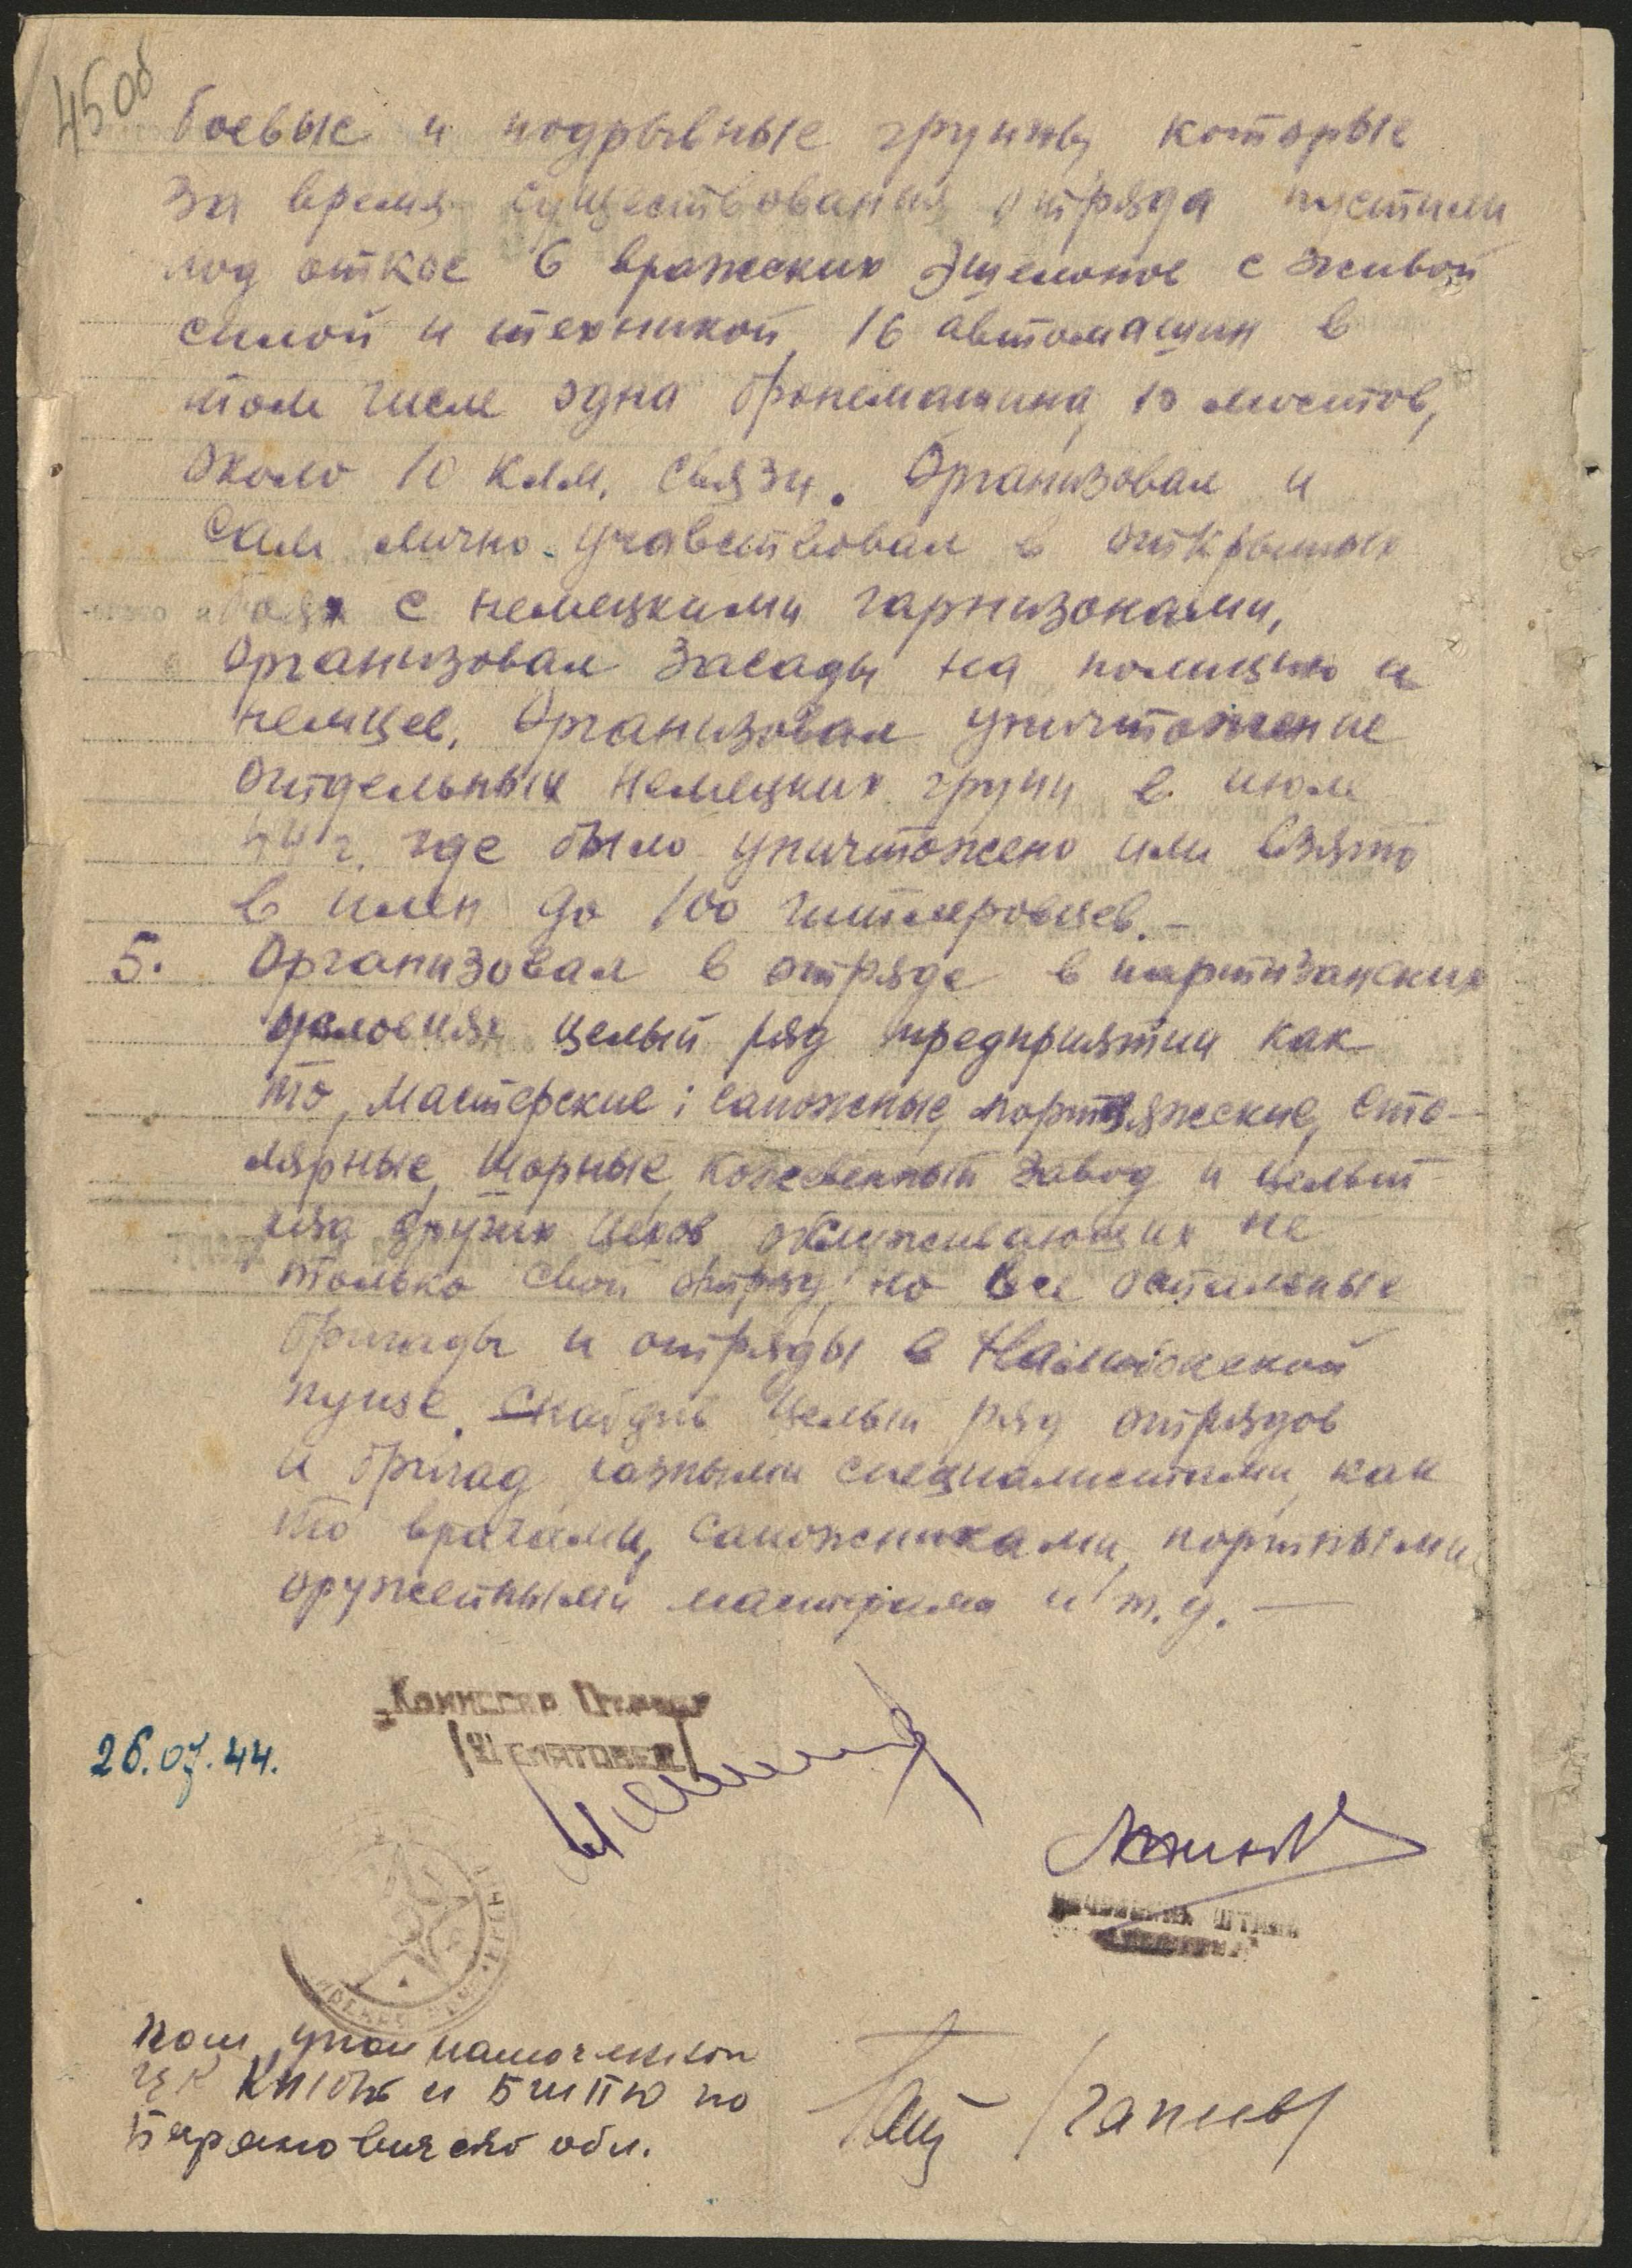 45об
боевые и подрывные группы, которые
за время существования отряда пустили
под откос 6 вражеских эшелонов с живой
силой и техникой, 16 автомашин в
том числе одна бронемашина, 10 мостов,
около 10 клм. связи. Организовал и
сам лично учавствовал в открытых
боях с немецкими гарнизонами,
Организовал засады на полицию и
немцев. Организовал уничтожение
отдельных немецких групп в июле
44 г. где было уничтожено или взято
в плен до 100 гитлеровцев. –
5. Организовал в отряде в партизанских
условиях целый ряд предприятий как
то, мастерские: сапожные, портняжские, сто-
лярные, шорные, кожевенный завод и целый
ряд других цехов, обслуживающих не
только свой отряд, но все остальные
бригады и отряды в Налибокской
пуще. Снабдив целый ряд отрядов
и бригад разными специалистами, как
то врачами, сапожниками, портными
оружейными мастерами и т.д. —
Комиссар Отряда
26.07.44.
Начальник штаба
Пом. уполномоченного
ЦК КП(б)Б и БШПД по
Барановичской обл.